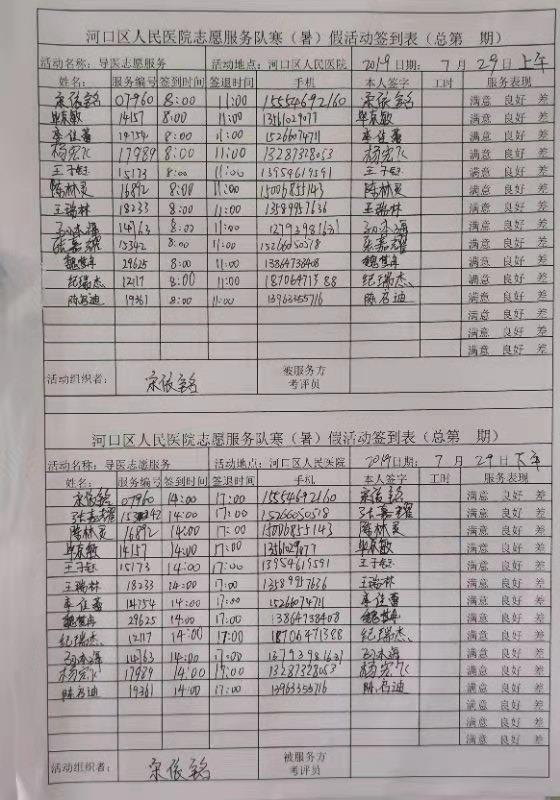 河口区人民医院志愿服务队寒（暑）假活动签到表（总第 期）
活动名称：导医志愿服务 活动地点：河口区人民医院 2019日期： 7 月 29日上午
姓名： 服务编号 签到时间 签退时间 手机 本人签字 工时 服务表现
宋依铭 07960 8:00 11:00 15554692160 宋依铭 满意 良好 差
毕京敏 14157 8:00 11:00 13561029077 毕京敏 满意 良好 差
李佳蕾 14754 8:00 11:00 15266074711 李佳蕾 满意 良好 差
杨宏飞 17989 8:00 11:00 13287328053 杨宏飞 满意 良好 差
王子钰 15173 8:00 11:00 13954619591 王子钰 满意 良好 差
陈林灵 16892 8:00 11:00 15006855143 陈林灵 满意 良好 差
王瑞林 18233 8:00 11:00 13589957636 王瑞林 满意 良好 差
14763 8:00 11:00 满意 良好 差
张嘉耀 15342 8:00 11:00 15266050518 张嘉耀 满意 良好 差
29625 8:00 11:00 13864738408 满意 良好 差
纪瑞杰 12117 8:00 11:00 18706471388 纪瑞杰 满意 良好 差
陈名迪 19361 8:00 11:00 13963355716 陈名迪 满意 良好 差
满意 良好 差
满意 良好 差
满意 良好 差
活动组织者： 宋依铭 被服务方
考评员
河口区人民医院志愿服务队寒（暑）假活动签到表（总第 期）
活动名称：导医志愿服务 活动地点：河口区人民医院 2019日期： 7 月 29日下午
姓名： 服务编号 签到时间 签退时间 手机 本人签字 工时 服务表现
宋依铭 07960 14:00 17:00 15554692160 宋依铭 满意 良好 差
张嘉耀 15342 14:00 17:00 15266050518 张嘉耀 满意 良好 差
陈林灵 16892 14:00 17:00 15006855143 陈林灵 满意 良好 差
毕京敏 14157 14:00 17:00 13561029077 毕京敏 满意 良好 差
王子钰 15173 14:00 17:00 13954619591 王子钰 满意 良好 差
王瑞林 18233 14:00 17:00 13589957636 王瑞林 满意 良好 差
李佳蕾 14754 14:00 17:00 15266074711 李佳蕾 满意 良好 差
29625 14:00 17:00 13864738408 满意 良好 差
纪瑞杰 12117 14:00 17:00 18706471388 纪瑞杰 满意 良好 差
14763 14:00 17:00 满意 良好 差
杨宏飞 17989 14:00 17:00 13287328053 杨宏飞 满意 良好 差
陈名迪 19361 14:00 17:00 13963355716 陈名迪 满意 良好 差
满意 良好 差
满意 良好 差
满意 良好 差
活动组织者： 宋依铭 被服务方
考评员